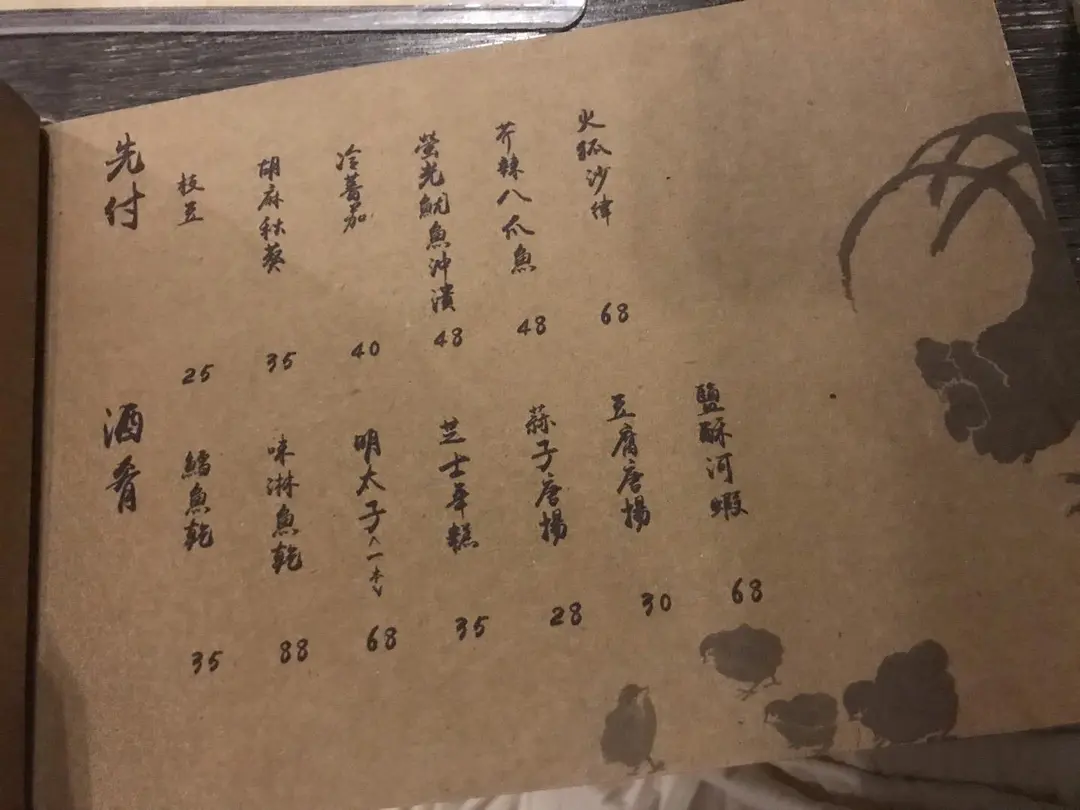 先付
枝豆
25
胡麻秋葵
35
冷蕃茄
40
螢光魷魚沖漬
48
芥辣八爪魚
48
火狐沙律
68
酒肴
鱈魚乾
35
味淋魚乾
88
明太子<一本>
68
芝士年糕
35
蒜子唐揚
28
豆腐唐揚
30
鹽酥河蝦
68